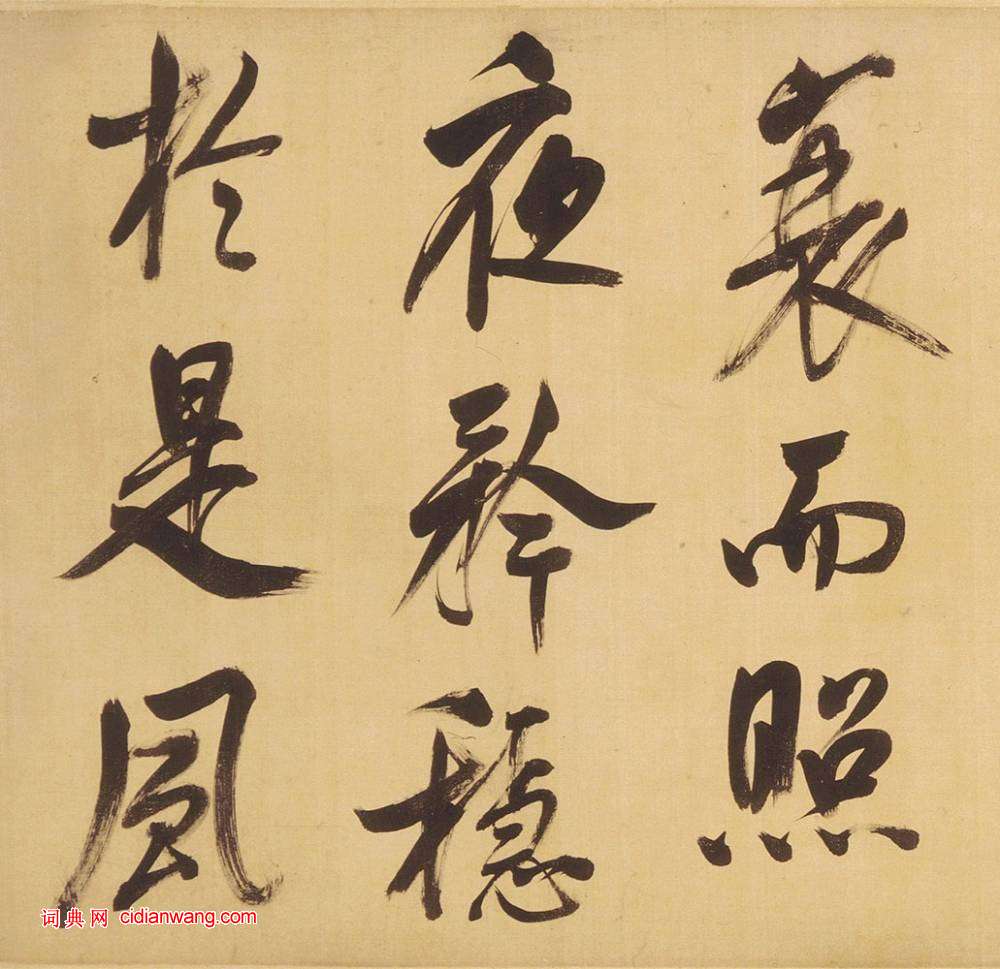 衰而照
夜矜穩
於是風
词典网 cidianwang.com